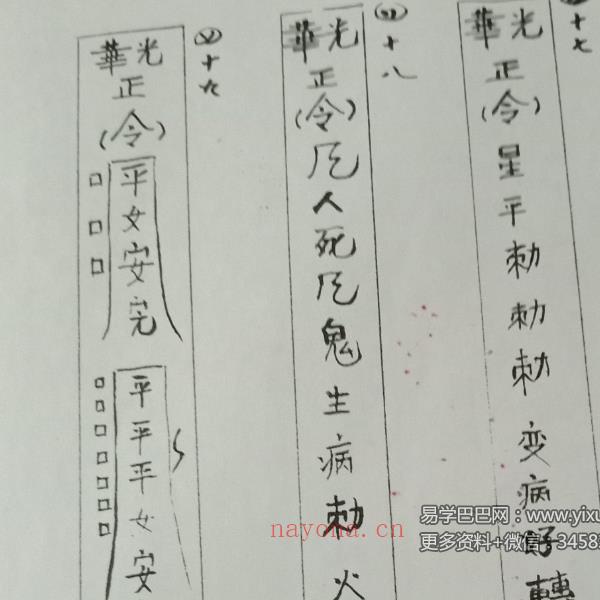 十七
華光
正
(令)
星
平
勅
勅
勅
变
病
好
轉
十八
華光
正
(令)
人
死
鬼
生
病
勅
火
十九
華光
正
(令)
平
女
安
完
平
平
平
女
安
nayona.cn
易学巴巴网：www.yixu
更多资料+微信：34583